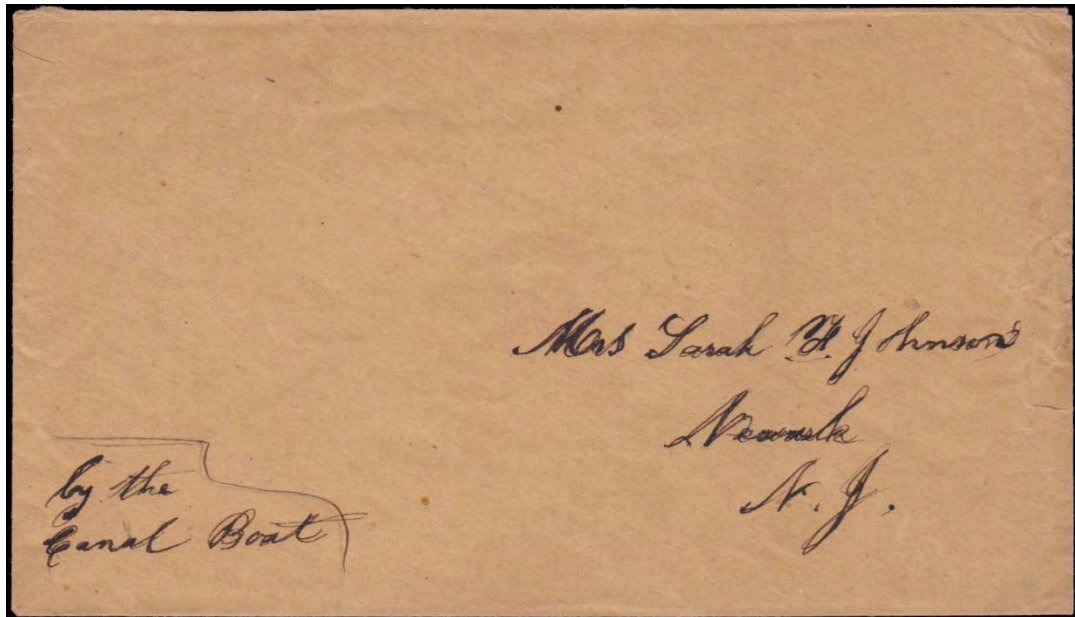 Mrs Sarah H. Johnson
Newark
N. J.
by the
Canal Boat